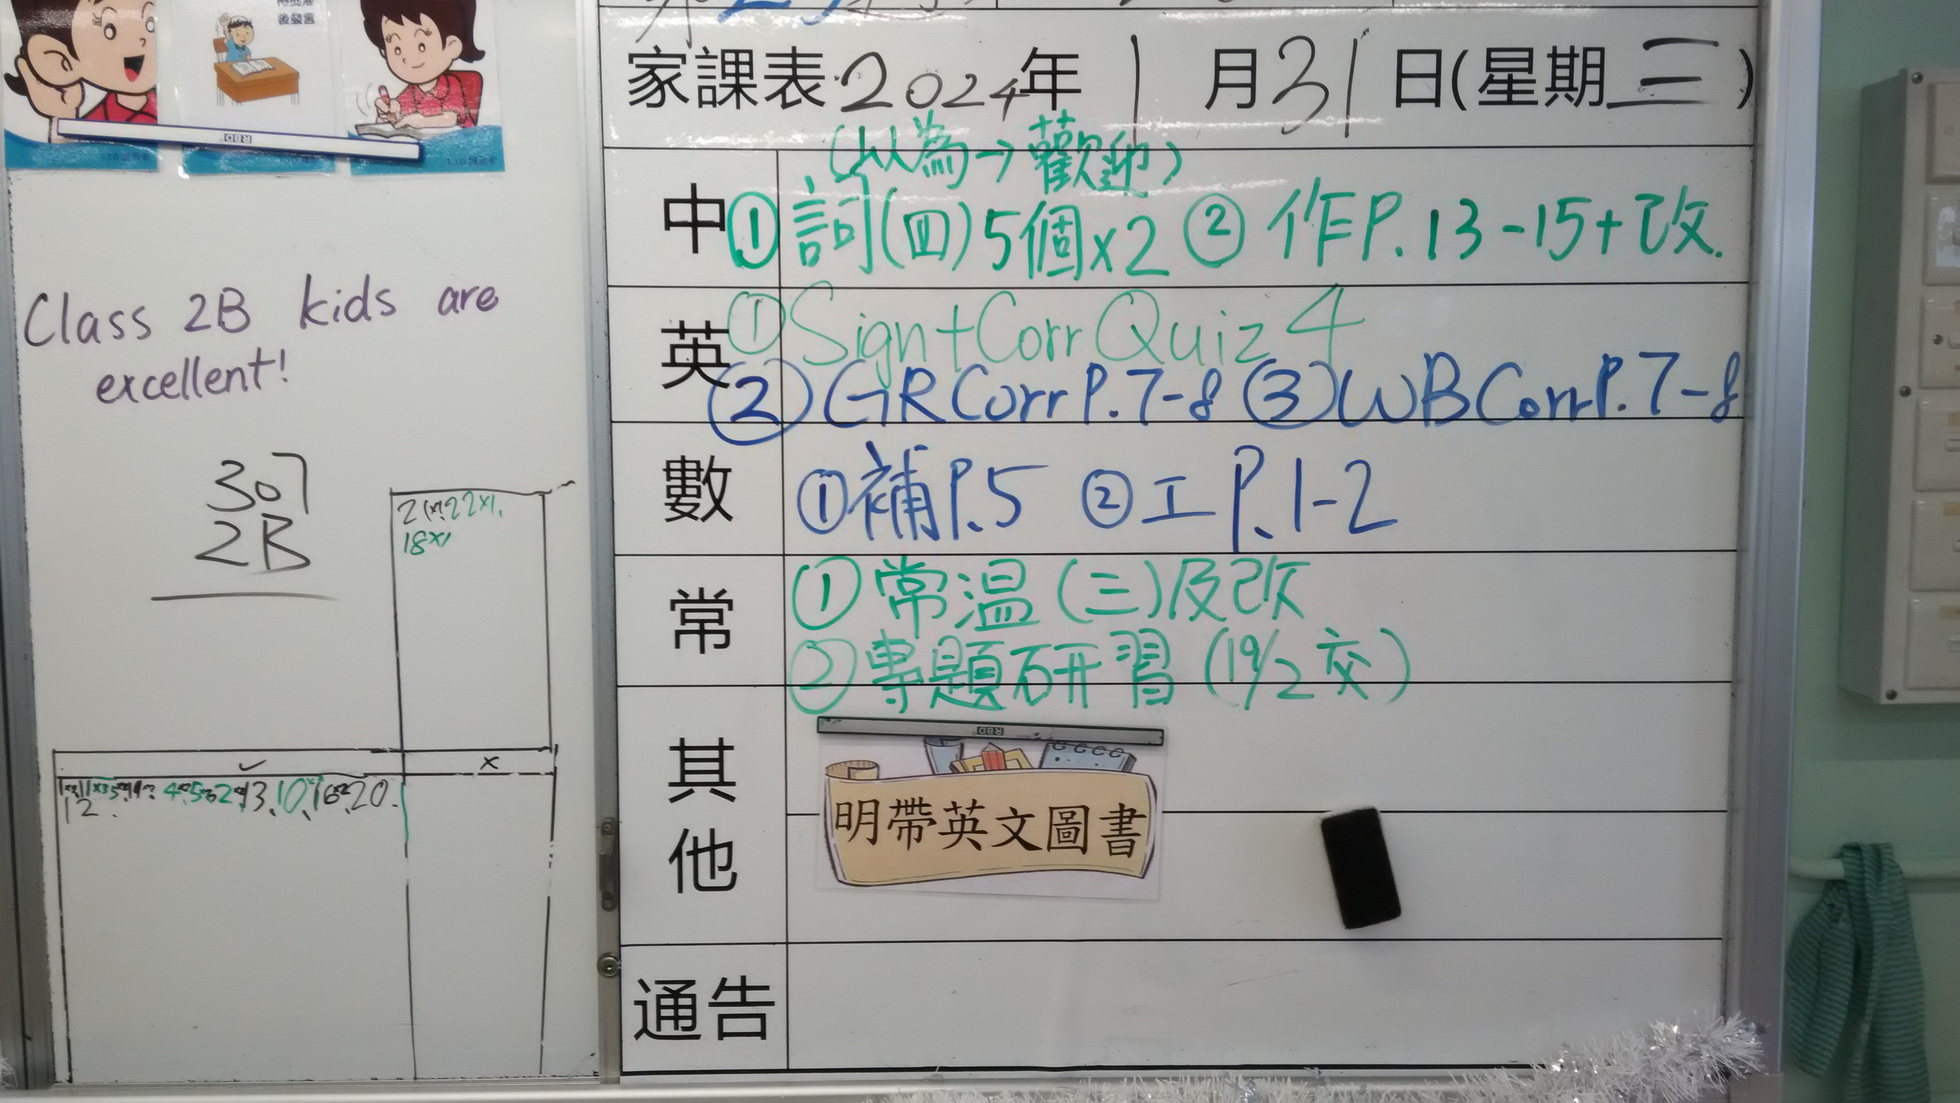 後發言
RBD
Class 2B kids are
excellent!
307
2B
18x1
✓ x
12.
家課表2024年 1月31日(星期三)
(以為→歡迎)
中 ①詞(四)5個x2 ②作P.13-15+改.
英 ①Sign+Corr Quiz 4
②GR Corr P.7-8 ③WB Corr P.7-8
數 ①補P.5 ②工P.1-2
常 ①常溫(三)及改
②專題研習(19/2交)
其他
RBD
明帶英文圖書
通告